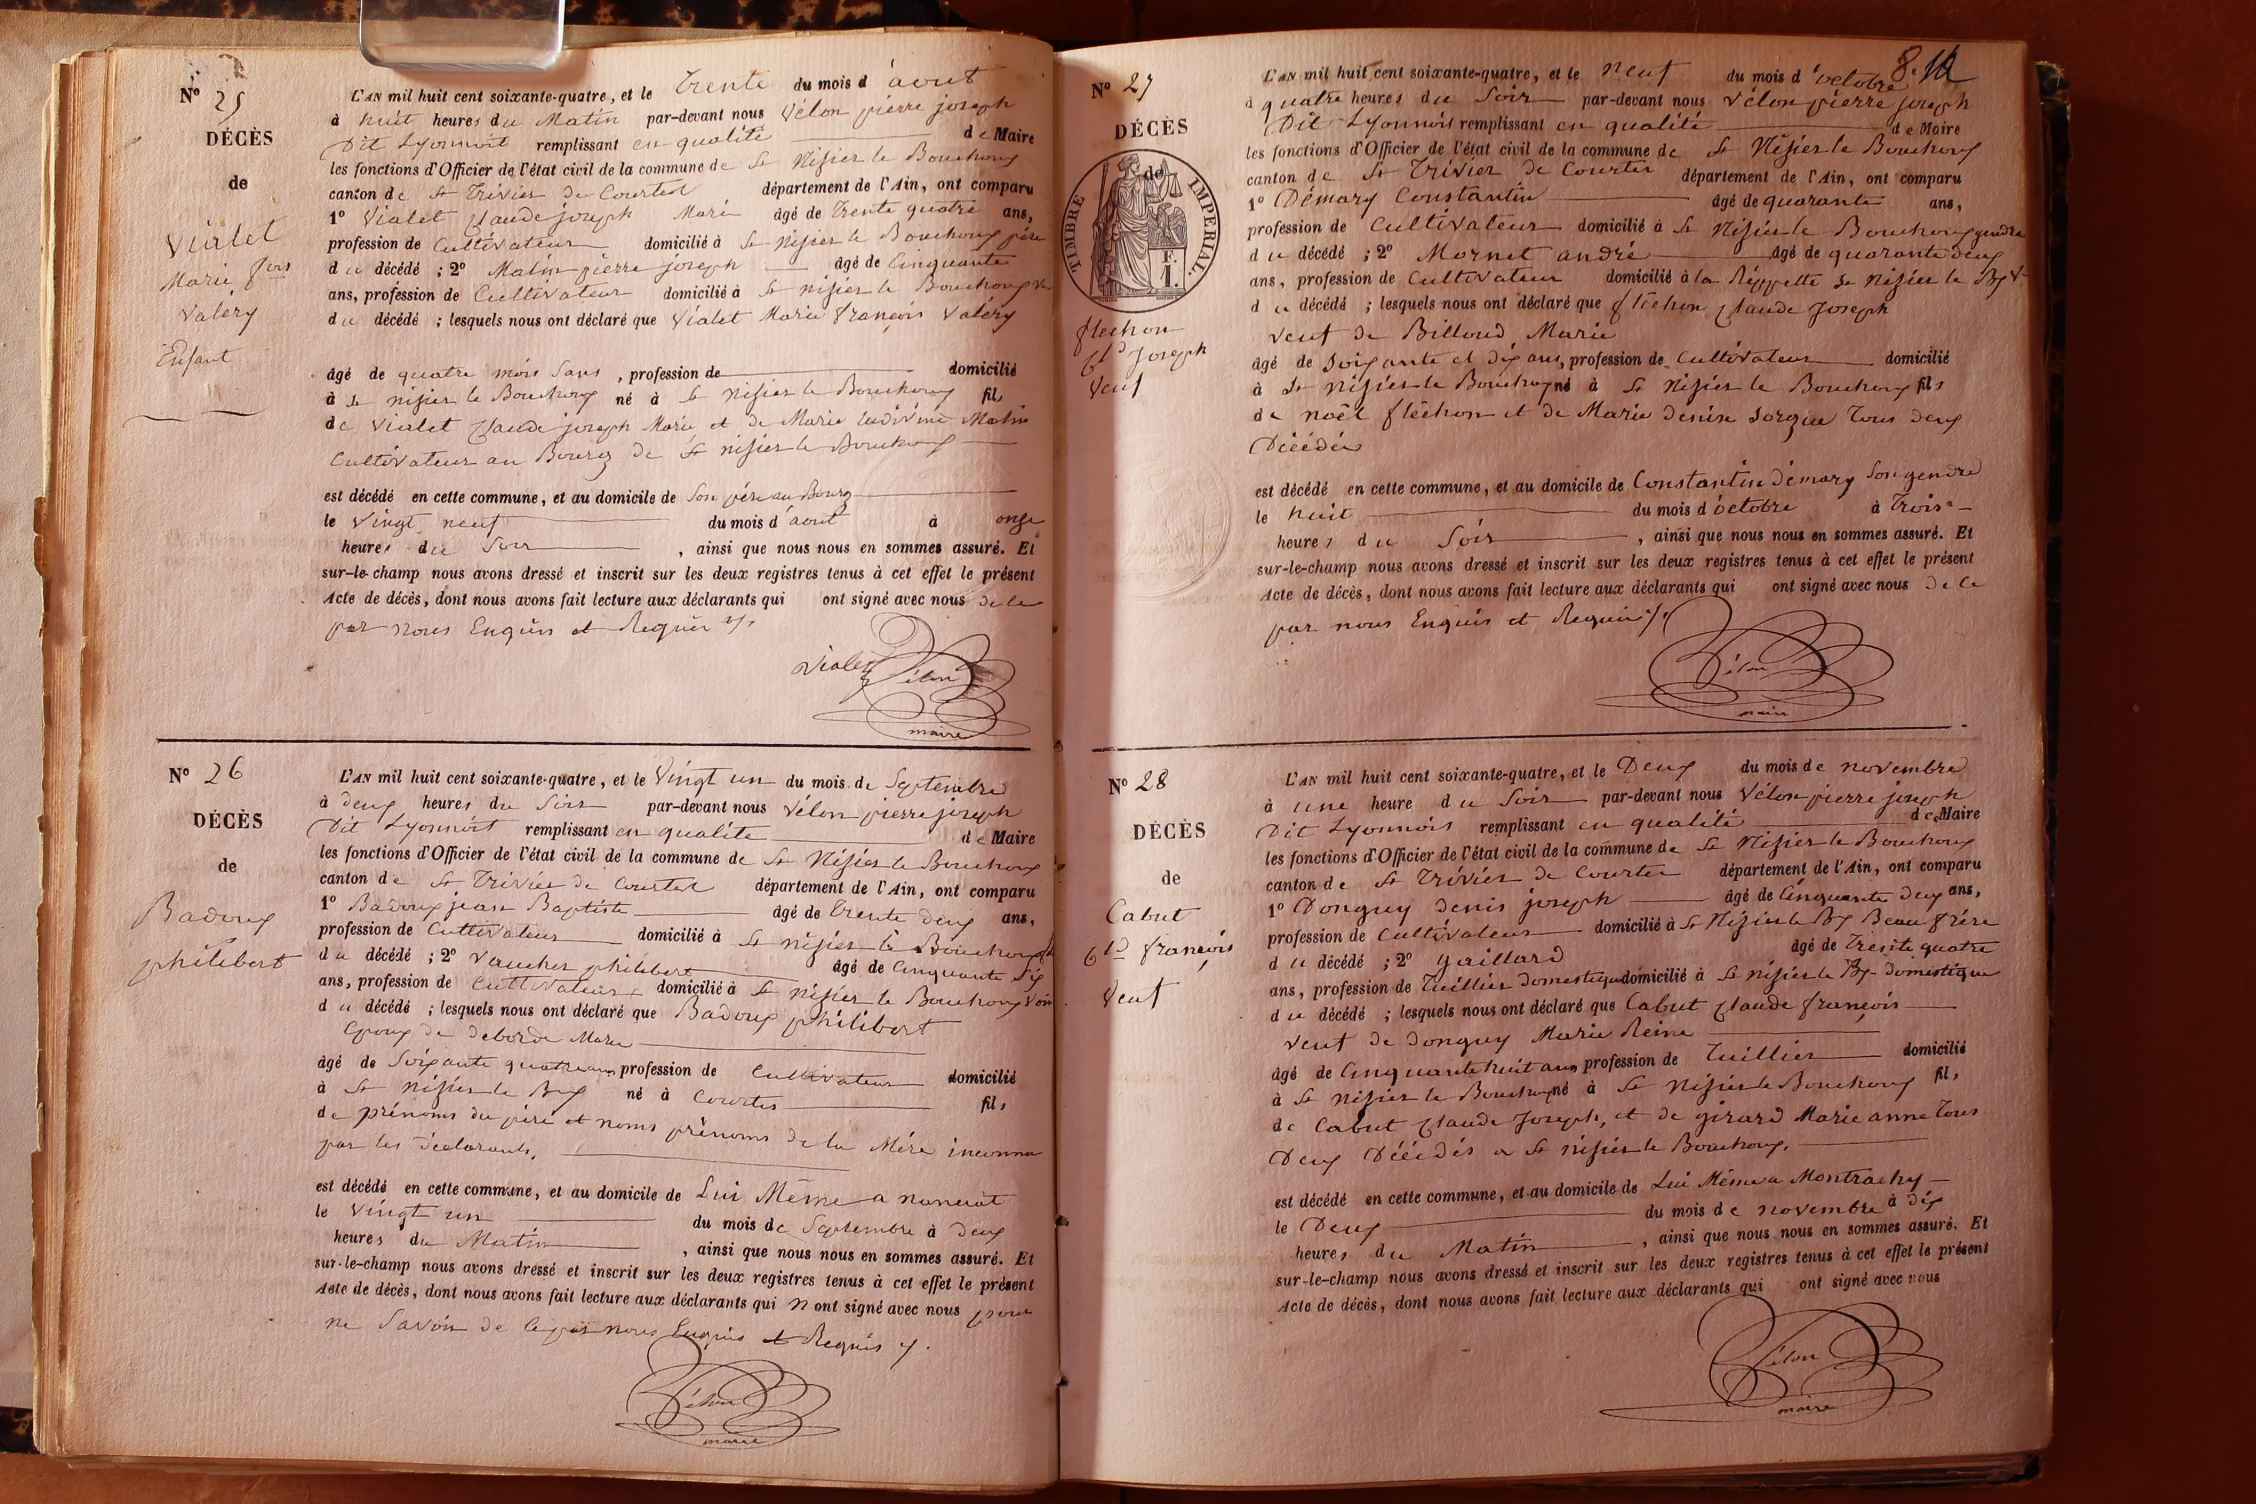 N° 25
DÉCÈS
de
Vialet
Marie fois
Valéry
Enfant
L'AN mil huit cent soixante-quatre, et le trente du mois d'aout
à huit heures du Matin par-devant nous Vélon pierre joseph
Dit Lyonnois remplissant en qualité de Maire
les fonctions d'Officier de l'état civil de la commune de St Nisier le Bouchoux
canton de St Trivier de Courtes département de l'Ain, ont comparu
1° Vialet Claude joseph Marie âgé de trente quatre ans,
profession de Cultivateur domicilié à St Nisier le Bouchoux père
du décédé ; 2° Matin pierre joseph âgé de Cinquante
ans, profession de Cultivateur domicilié à St nisier le Bouchoux
du décédé ; lesquels nous ont déclaré que Vialet Marie françois Valéry
âgé de quatre mois Sans , profession de domicilié
à St nisier le Bouchoux né à St Nisier le Bouchoux fils
de Vialet Claude joseph Marie et de Marie Ludivine Matin
Cultivateur au Bourg de St nisier le Bouchoux
est décédé en cette commune, et au domicile de Son père au Bourg
le Vingt neuf du mois d'aout à onze
heures du Soir , ainsi que nous nous en sommes assuré. Et
sur-le-champ nous avons dressé et inscrit sur les deux registres tenus à cet effet le présent
Acte de décès, dont nous avons fait lecture aux déclarants qui ont signé avec nous de ce
par nous Enquis et Requis
Vialet Vélon
maire
N° 26
DÉCÈS
de
Badoux
philibert
L'AN mil huit cent soixante-quatre, et le Vingt un du mois de Septembre
à deux heures du Soir par-devant nous Vélon pierre joseph
Dit Lyonnois remplissant en qualité de Maire
les fonctions d'Officier de l'état civil de la commune de St Nisier le Bouchoux
canton de St Trivier de Courtes département de l'Ain, ont comparu
1° Badoux jean Baptiste âgé de trente deux ans,
profession de Cultivateur domicilié à St nisier le Bouchoux
du décédé ; 2° Vaucher philibert âgé de Cinquante Six
ans, profession de Cultivateur domicilié à St Nisier le Bouchoux Voisin
du décédé ; lesquels nous ont déclaré que Badoux philibert
Epoux de deborde Marie
âgé de Soixante quatre ans profession de Cultivateur domicilié
à St Nisier le Bx né à Courtes fils
de prénoms du père et noms prénoms de la Mère inconnu
par les déclarants.
est décédé en cette commune, et au domicile de Lui Même a
le Vingt un du mois de Septembre à deux
heures du Matin , ainsi que nous nous en sommes assuré. Et
sur-le-champ nous avons dressé et inscrit sur les deux registres tenus à cet effet le présent
Acte de décès, dont nous avons fait lecture aux déclarants qui n ont signé avec nous pour
ne Savoir de ce par nous Enquis et Requis
Vélon
maire
8.
N° 27
DÉCÈS
de
TIMBRE IMPERIAL.
F.
1.
flechon
Cld Joseph
Veuf
L'AN mil huit cent soixante-quatre, et le neuf du mois d'octobre
à quatre heures du Soir par-devant nous Vélon pierre joseph
Dit Lyonnois remplissant en qualité de Maire
les fonctions d'Officier de l'état civil de la commune de St Nisier le Bouchoux
canton de St Trivier de Courtes département de l'Ain, ont comparu
1° Démary Constantin âgé de quarante ans,
profession de Cultivateur domicilié à St Nisier le Bouchoux gendre
du décédé ; 2° Mornet andré âgé de quarante deux
ans, profession de Cultivateur domicilié à la St Nisier le Bx
du décédé ; lesquels nous ont déclaré que flechon Claude Joseph
Veuf de Billoud Marie
âgé de Soixante et dix ans, profession de Cultivateur domicilié
à St nisier le Bouchoux né à St Nisier le Bouchoux fils
de noël flechon et de Marie denise Sorgue Tous deux
Décédés
est décédé en cette commune, et au domicile de Constantin démary Son gendre
le huit du mois d'octobre à Trois
heures du Soir , ainsi que nous nous en sommes assuré. Et
sur-le-champ nous avons dressé et inscrit sur les deux registres tenus à cet effet le présent
Acte de décès, dont nous avons fait lecture aux déclarants qui ont signé avec nous de ce
par nous Enquis et Requis
Vélon
maire
N° 28
DÉCÈS
de
Cabut
Cld françois
Veuf
L'AN mil huit cent soixante-quatre, et le Deux du mois de novembre
à une heure du Soir par-devant nous Vélon pierre joseph
Dit Lyonnois remplissant en qualité de Maire
les fonctions d'Officier de l'état civil de la commune de St Nisier le Bouchoux
canton de St Trivier de Courtes département de l'Ain, ont comparu
1° Donguy denis joseph âgé de Cinquante deux ans,
profession de Cultivateur domicilié à St Nisier le Bx Beau frère
du décédé ; 2° gaillard âgé de Trente quatre
ans, profession de Tuillier domestique domicilié à St nisier le Bx domestique
du décédé ; lesquels nous ont déclaré que Cabut Claude françois
Veuf de donguy Marie Reine
âgé de Cinquante huit ans profession de Tuillier domicilié
à St Nisier le Bouchoux né à St Nisier le Bouchoux fils
de Cabut Claude Joseph, et de girard Marie anne Tous
Deux Décédés a St nisier le Bouchoux.
est décédé en cette commune, et au domicile de Lui Même a Montrachy
le Deux du mois de novembre à dix
heures du Matin , ainsi que nous nous en sommes assuré. Et
sur-le-champ nous avons dressé et inscrit sur les deux registres tenus à cet effet le présent
Acte de décès, dont nous avons fait lecture aux déclarants qui ont signé avec nous
Vélon
maire